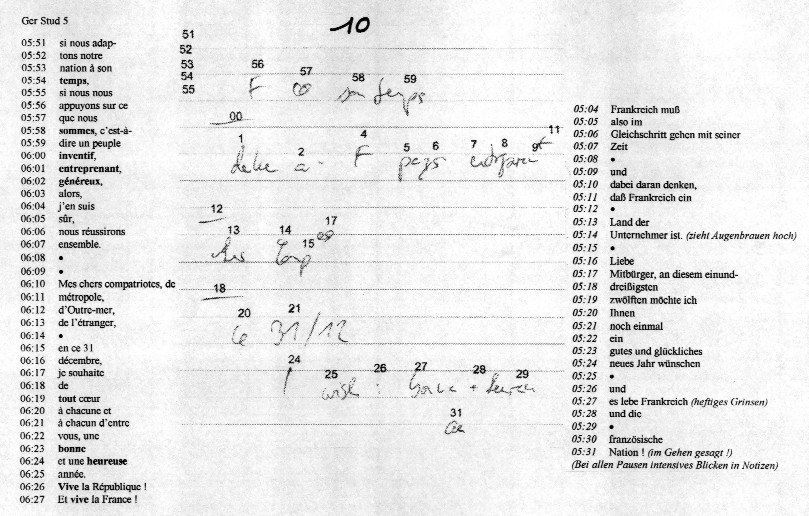 Ger Stud 5
10
05:51 si nous adap-
05:52 tons notre
05:53 nation à son
05:54 temps,
05:55 si nous nous
05:56 appuyons sur ce
05:57 que nous
05:58 sommes, c'est-à-
05:59 dire un peuple
06:00 inventif,
06:01 entreprenant,
06:02 généreux,
06:03 alors,
06:04 j'en suis
06:05 sûr,
06:06 nous réussirons
06:07 ensemble.
06:08 •
06:09 •
06:10 Mes chers compatriotes, de
06:11 métropole,
06:12 d'Outre-mer,
06:13 de l'étranger,
06:14 •
06:15 en ce 31
06:16 décembre,
06:17 je souhaite
06:18 de
06:19 tout cœur
06:20 à chacune et
06:21 à chacun d'entre
06:22 vous, une
06:23 bonne
06:24 et une heureuse
06:25 année.
06:26 Vive la République !
06:27 Et vive la France !
51
52
53
54
55
56 57 58 59
F son temps
00
1 2 4 5 6 7 8 9 11
F pays
12
13 14 15 17
18
20 21
31/12
24
25 26 27 28 29
wish : +
31
05:04 Frankreich muß
05:05 also im
05:06 Gleichschritt gehen mit seiner
05:07 Zeit
05:08 •
05:09 und
05:10 dabei daran denken,
05:11 daß Frankreich ein
05:12 •
05:13 Land der
05:14 Unternehmer ist. (zieht Augenbrauen hoch)
05:15 •
05:16 Liebe
05:17 Mitbürger, an diesem einund-
05:18 dreißigsten
05:19 zwölften möchte ich
05:20 Ihnen
05:21 noch einmal
05:22 ein
05:23 gutes und glückliches
05:24 neues Jahr wünschen
05:25 •
05:26 und
05:27 es lebe Frankreich (heftiges Grinsen)
05:28 und die
05:29 •
05:30 französische
05:31 Nation ! (im Gehen gesagt !)
(Bei allen Pausen intensives Blicken in Notizen)